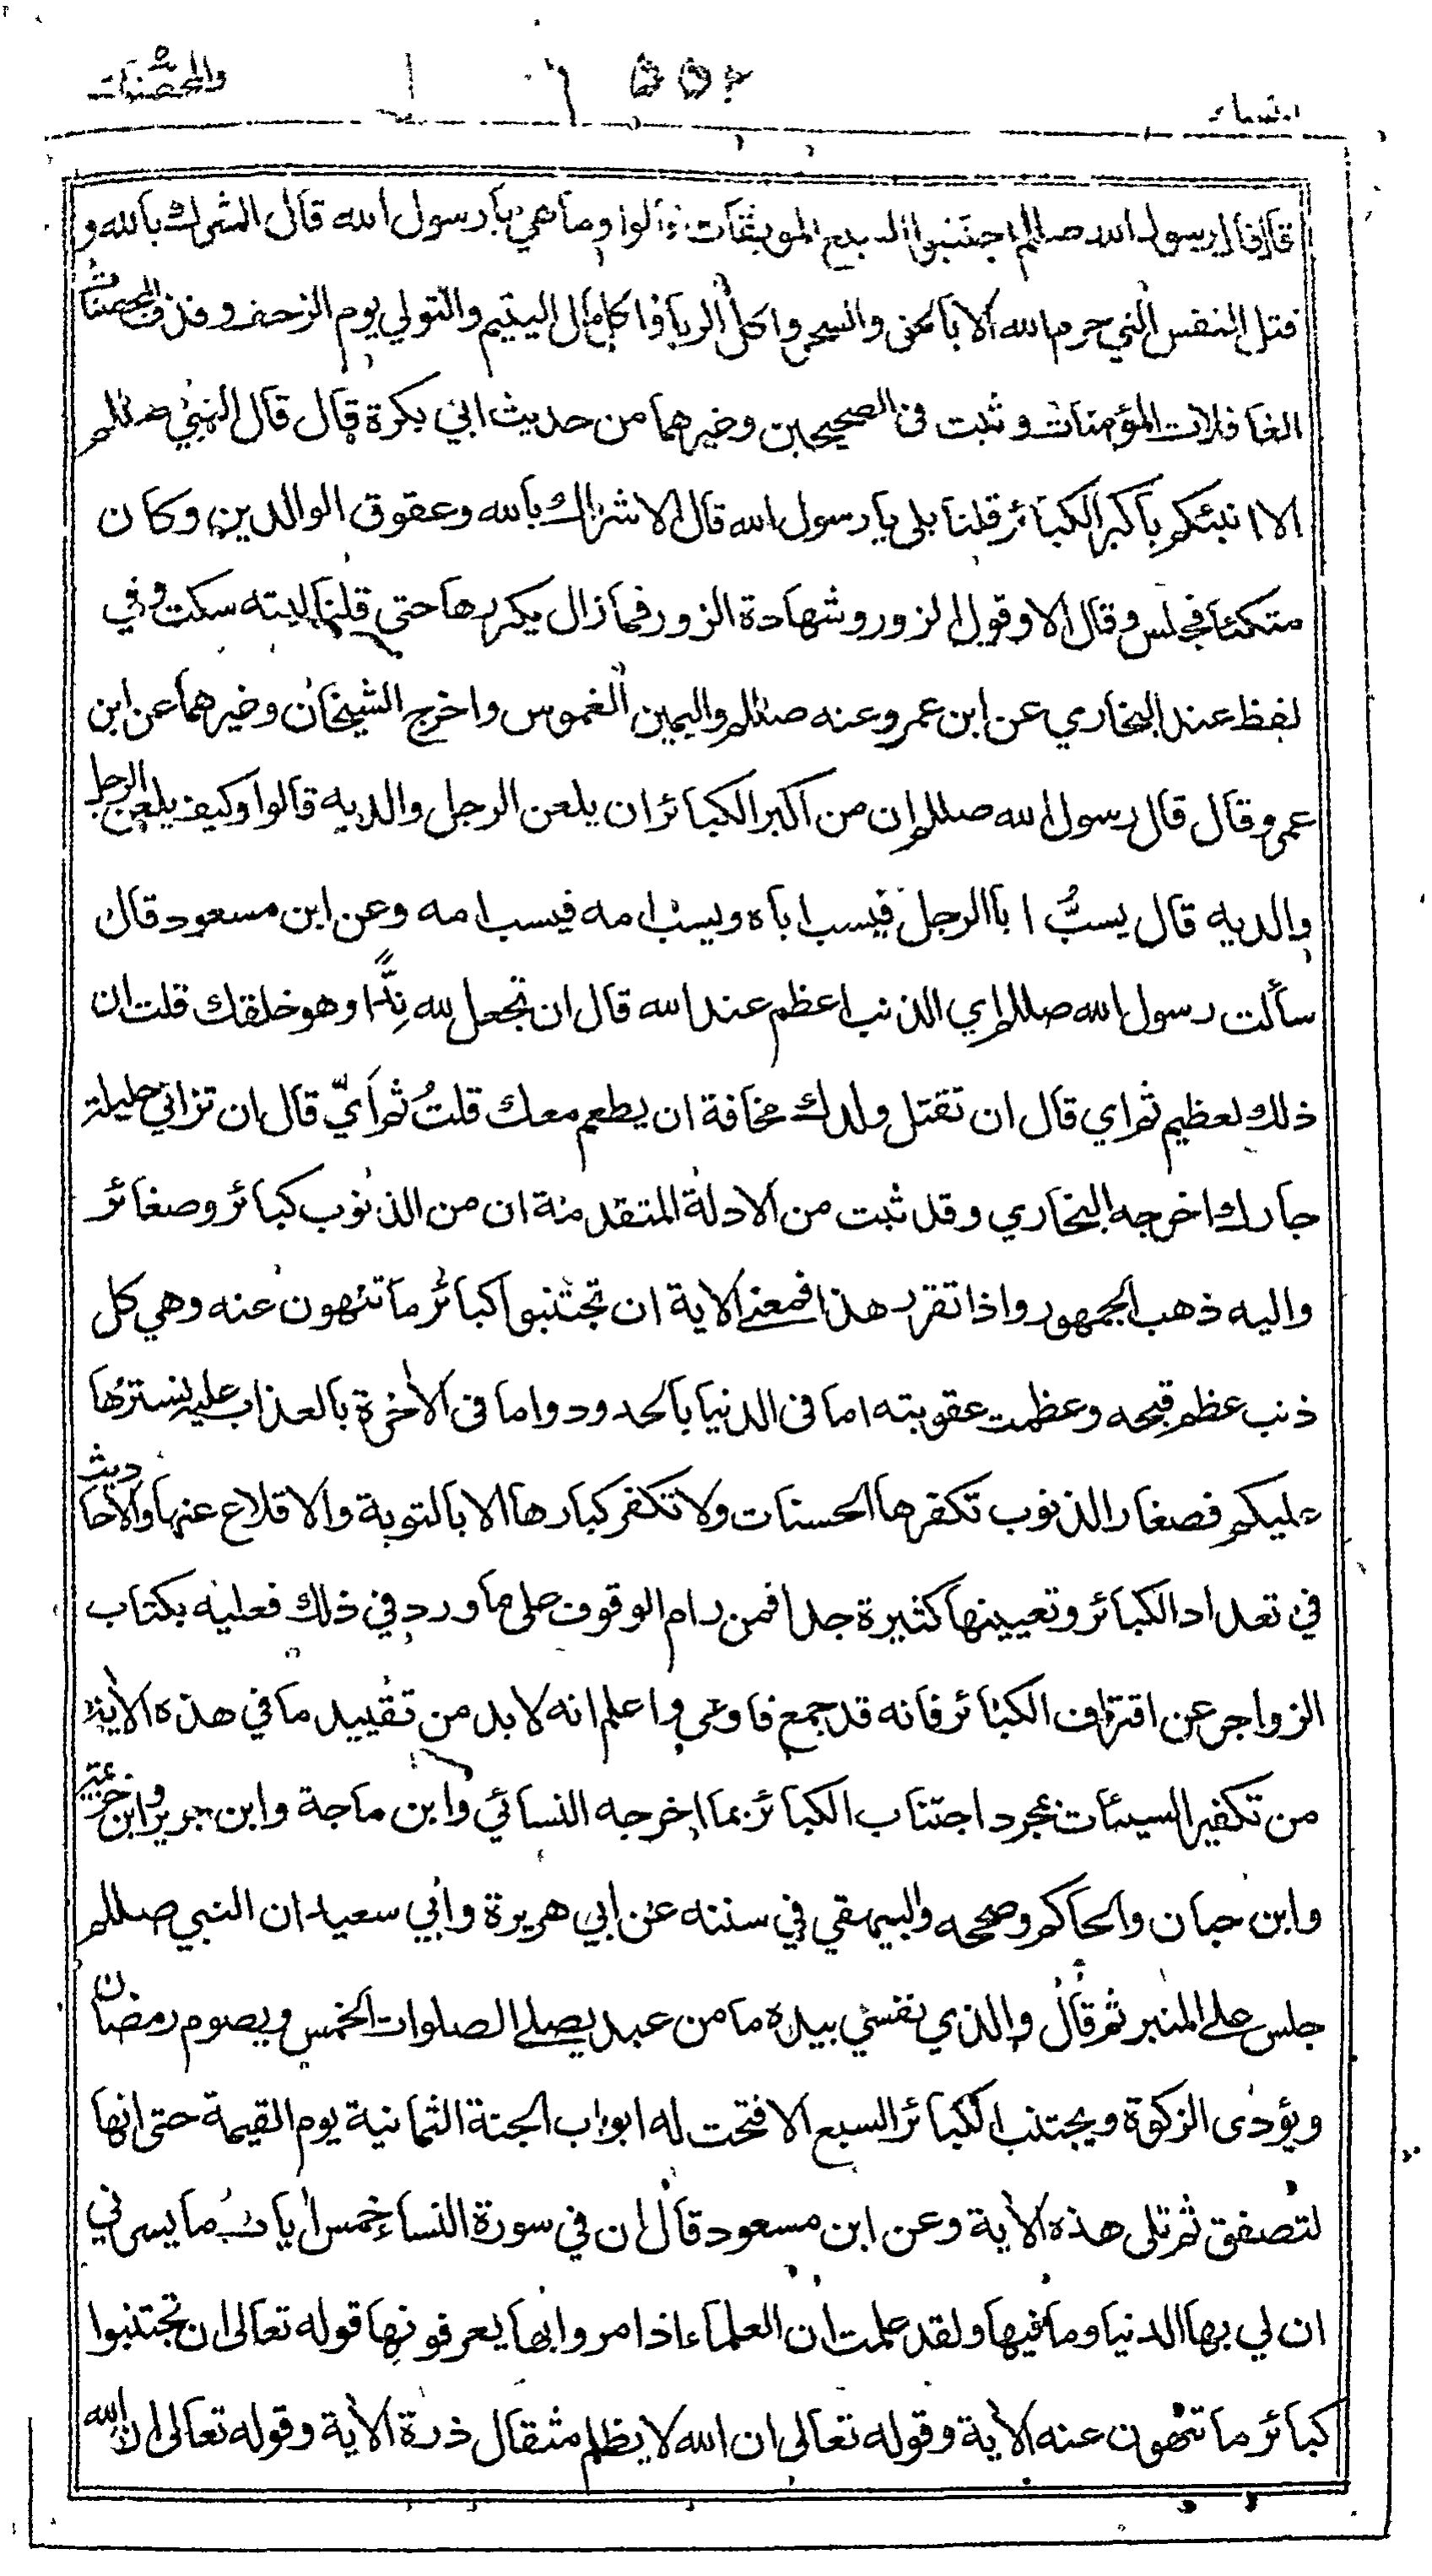 النساء ٥٥٢ والمحصنات
قال قال رسول الله صللم اجتنبوا السبع الموبقات قالوا وما هي يا رسول الله قال الشرك بالله و
قتل النفس التي حرم الله الا بالحق والسحر واكل الربا واكل مال اليتيم والتولي يوم الزحف وقذف المحصنات
الغافلات المؤمنات وثبت فى الصحيحين وغيرهما من حديث ابي بكرة قال قال النبي صللم
الا انبئكم باكبر الكبائر قلنا بلى يا رسول الله قال الاشراك بالله وعقوق الوالدين وكان
متكئا فجلس وقال الا وقول الزور وشهادة الزور فما زال يكررها حتى قلنا ليته سكت وفي
لفظ عند البخاري عن ابن عمرو عنه صللم واليمين الغموس واخرج الشيخان وغيرهما عن ابن
عمرو قال قال رسول الله صللم ان من اكبر الكبائر ان يلعن الرجل والديه قالوا وكيف يلعن الرجل
والديه قال يسبُّ ابا الرجل فيسب اباه ويسب امه فيسب امه وعن ابن مسعود قال
سألت رسول الله صللم اي الذنب اعظم عند الله قال ان تجعل لله نِدًّا وهو خلقك قلت ان
ذلك لعظيم ثم اي قال ان تقتل ولدك مخافة ان يطعم معك قلتُ ثم ايّ قال ان تزاني حليلة
جارك اخرجه البخاري وقد ثبت من الادلة المتقدمة ان من الذنوب كبائر وصغائر
واليه ذهب الجمهور واذا تقرر هذا فمعنى الاية ان تجتنبوا كبائر ما تنهون عنه وهي كل
ذنب عظم قبحه وعظمت عقوبته اما فى الدنيا بالحدود واما فى الأخرة بالعذاب عليه نسترها
عليكم فصغار الذنوب تكفرها الحسنات ولا تكفر كبارها الا بالتوبة والاقلاع عنها والاحاديث
في تعداد الكبائر وتعيينها كثيرة جدا فمن رام الوقوف على ما ورد في ذلك فعليه بكتاب
الزواجر عن اقتراف الكبائر فانه قد جمع فاوعى واعلم انه لا بد من تقييد ما في هذه الأية
من تكفير السيئات بمجرد اجتناب الكبائر بما اخرجه النسائي وابن ماجة وابن جرير وابن خزيمة
وابن حبان والحاكم وصححه والبيهقي في سننه عن ابي هريرة وابي سعيد ان النبي صللم
جلس على المنبر ثم قال والذي نفسي بيده ما من عبد يصلي الصلوات الخمس ويصوم رمضان
ويؤدى الزكوة ويجتنب الكبائر السبع الا فتحت له ابواب الجنة الثمانية يوم القيمة حتى انها
لتصفق ثم تلى هذه الأية وعن ابن مسعود قال ان في سورة النساء خمس أيات ما يسرني
ان لي بها الدنيا وما فيها ولقد علمت ان العلماء اذا مروا بها يعرفونها قوله تعالى ان تجتنبوا
كبائر ما تنهون عنه الأية وقوله تعالى ان الله لا يظلم مثقال ذرة الأية وقوله تعالى ان الله